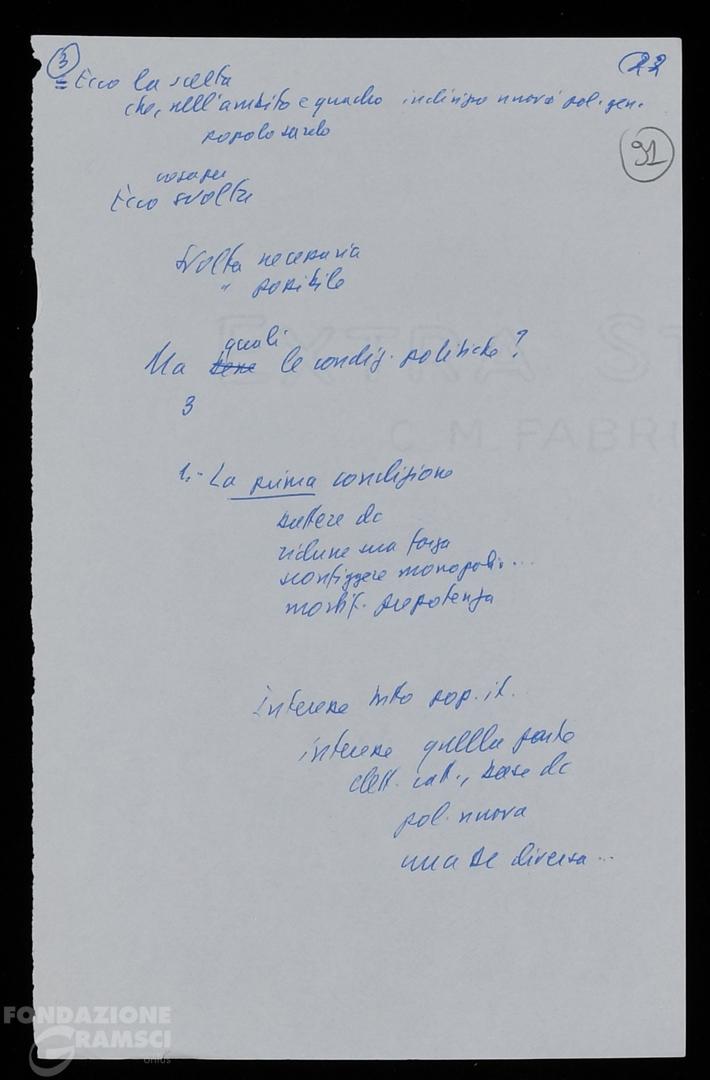 3
22
= Ecco la scelta
che, nell'ambito e quadro indirizzo nuovo pol. gen.
popolo sardo
91
Ecco svolta
Svolta necessaria
" possibile
quali
Ma bene le condiz. politiche?
3
1.- La prima condizione
battere dc
ridurre sua forza
sconfiggere monopoli...
mortif. prepotenza
EXTRA S
C. M. FABR
interesse tutto pop. it.
interesse quella parte
elett. catt., base dc
pol. nuova
una DC diversa...
FONDAZIONE
GRAMSCI
onlus